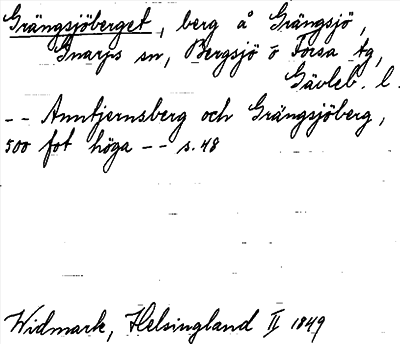 Grängsjöberget, berg å Grängsjö,
Gnarps sn, Bergsjö o Forsa tg,
Gävleb. l.
-- Anntjernsberg och Grängsjöberg,
500 fot höga -- s. 48
Widmark, Helsingland II 1849